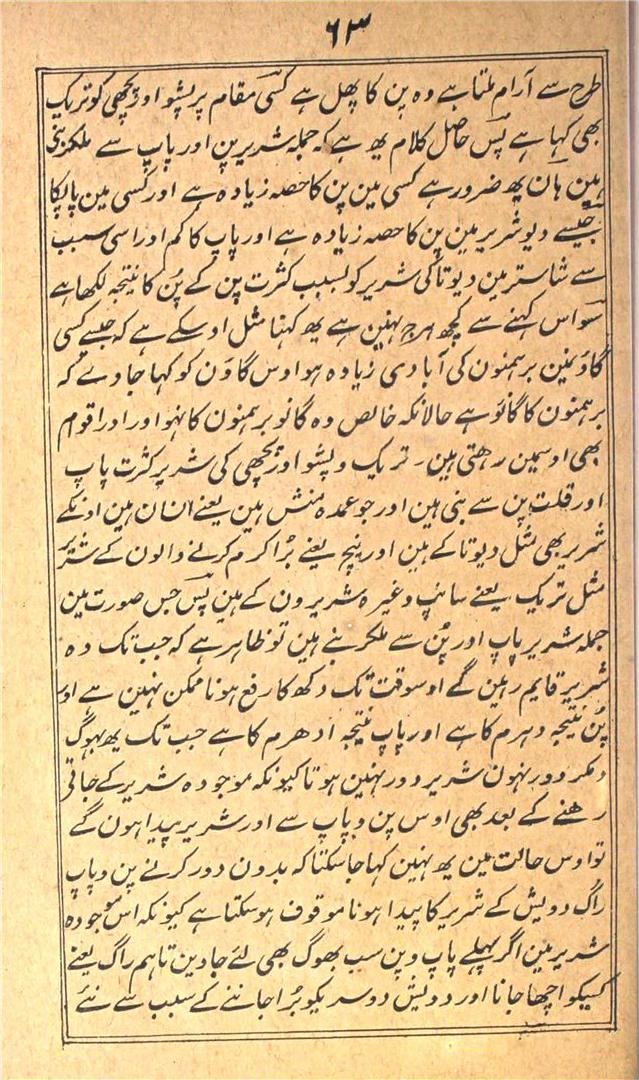 ۶۳
طرح سے آرام ملتا ہے وہ پن کا پھل ہے کسی مقام پر پشو اور پچھی کو تریک
بھی کہا ہے پس حاصل کلام یھ ہے کہ جملہ شریر پن اور پاپ سے ملکر بنی
ہین ہان یھ ضرور ہے کسی مین پن کا حصہ زیادہ ہے اور کسی مین پاپکا
جیسے دیو شریر مین پن کا حصہ زیادہ ہے اور پاپ کا کم اور اسی سبب
سے شاستر مین دیوتا کی شریر کو بسبب کثرت پن کے پُن کا نتیجہ لکھا ہے
سو اس کہنے سے کچھ ہرج نہین ہے یھ کہنا مثل اوسکے ہے کہ جیسے کسی
گاؤنمین برہمنون کی آبادی زیادہ ہو اوس گاؤن کو کہا جاوے کہ
برہمنون کا گانؤ ہے حالانکہ خالص وہ گانو برہمنون کا نہو اور اور اقوام
بھی اوسمین رھتی ہین۔ تریک و پشو اور پچھی کی شریر کثرت پاپ
اور قلت پن سے بنی ہین اور جو عمدہ منش ہین یعنے انسان ہین اونکے
شریر بھی مثل دیوتا کے ہین اور نیچ یعنے بُرا کرم کرنے والون کے شریر
مثل تریک یعنے سانپ وغیرہ شریرون کے ہین پس جس صورت مین
جملہ شریر پاپ اور پُن سے ملکر بنے ہین تو ظاہر ہے کہ جب تک وہ
شریر قایم رہین گے اوسوقت تک دکھ کا رفع ہونا ممکن نہین ہے اور
پُن نتیجہ دہرم کا ہے اور پاپ نتیجہ ادھرم کا ہے جب تک یھ بہوگ
کر دور نہون شریر دور نہین ہوتا کیونکہ موجودہ شریر کے جاتی
رھنے کے بعد بھی اوس پن و پاپ سے اور شریر پیدا ہون گے
تو اوس حالت مین یھ نہین کہا جا سکتا کہ بدون دور کرنے پن و پاپ
راگ دویش کے شریر کا پیدا ہونا موقوف ہو سکتا ہے کیونکہ اس موجودہ
شریر مین اگر پہلے پاپ و پن سب بھوگ بھی لئے جاوین تاہم راگ یعنے
کسیکو اچھا جانا اور دویش دوسریکو بُرا جاننے کے سبب سے نئے